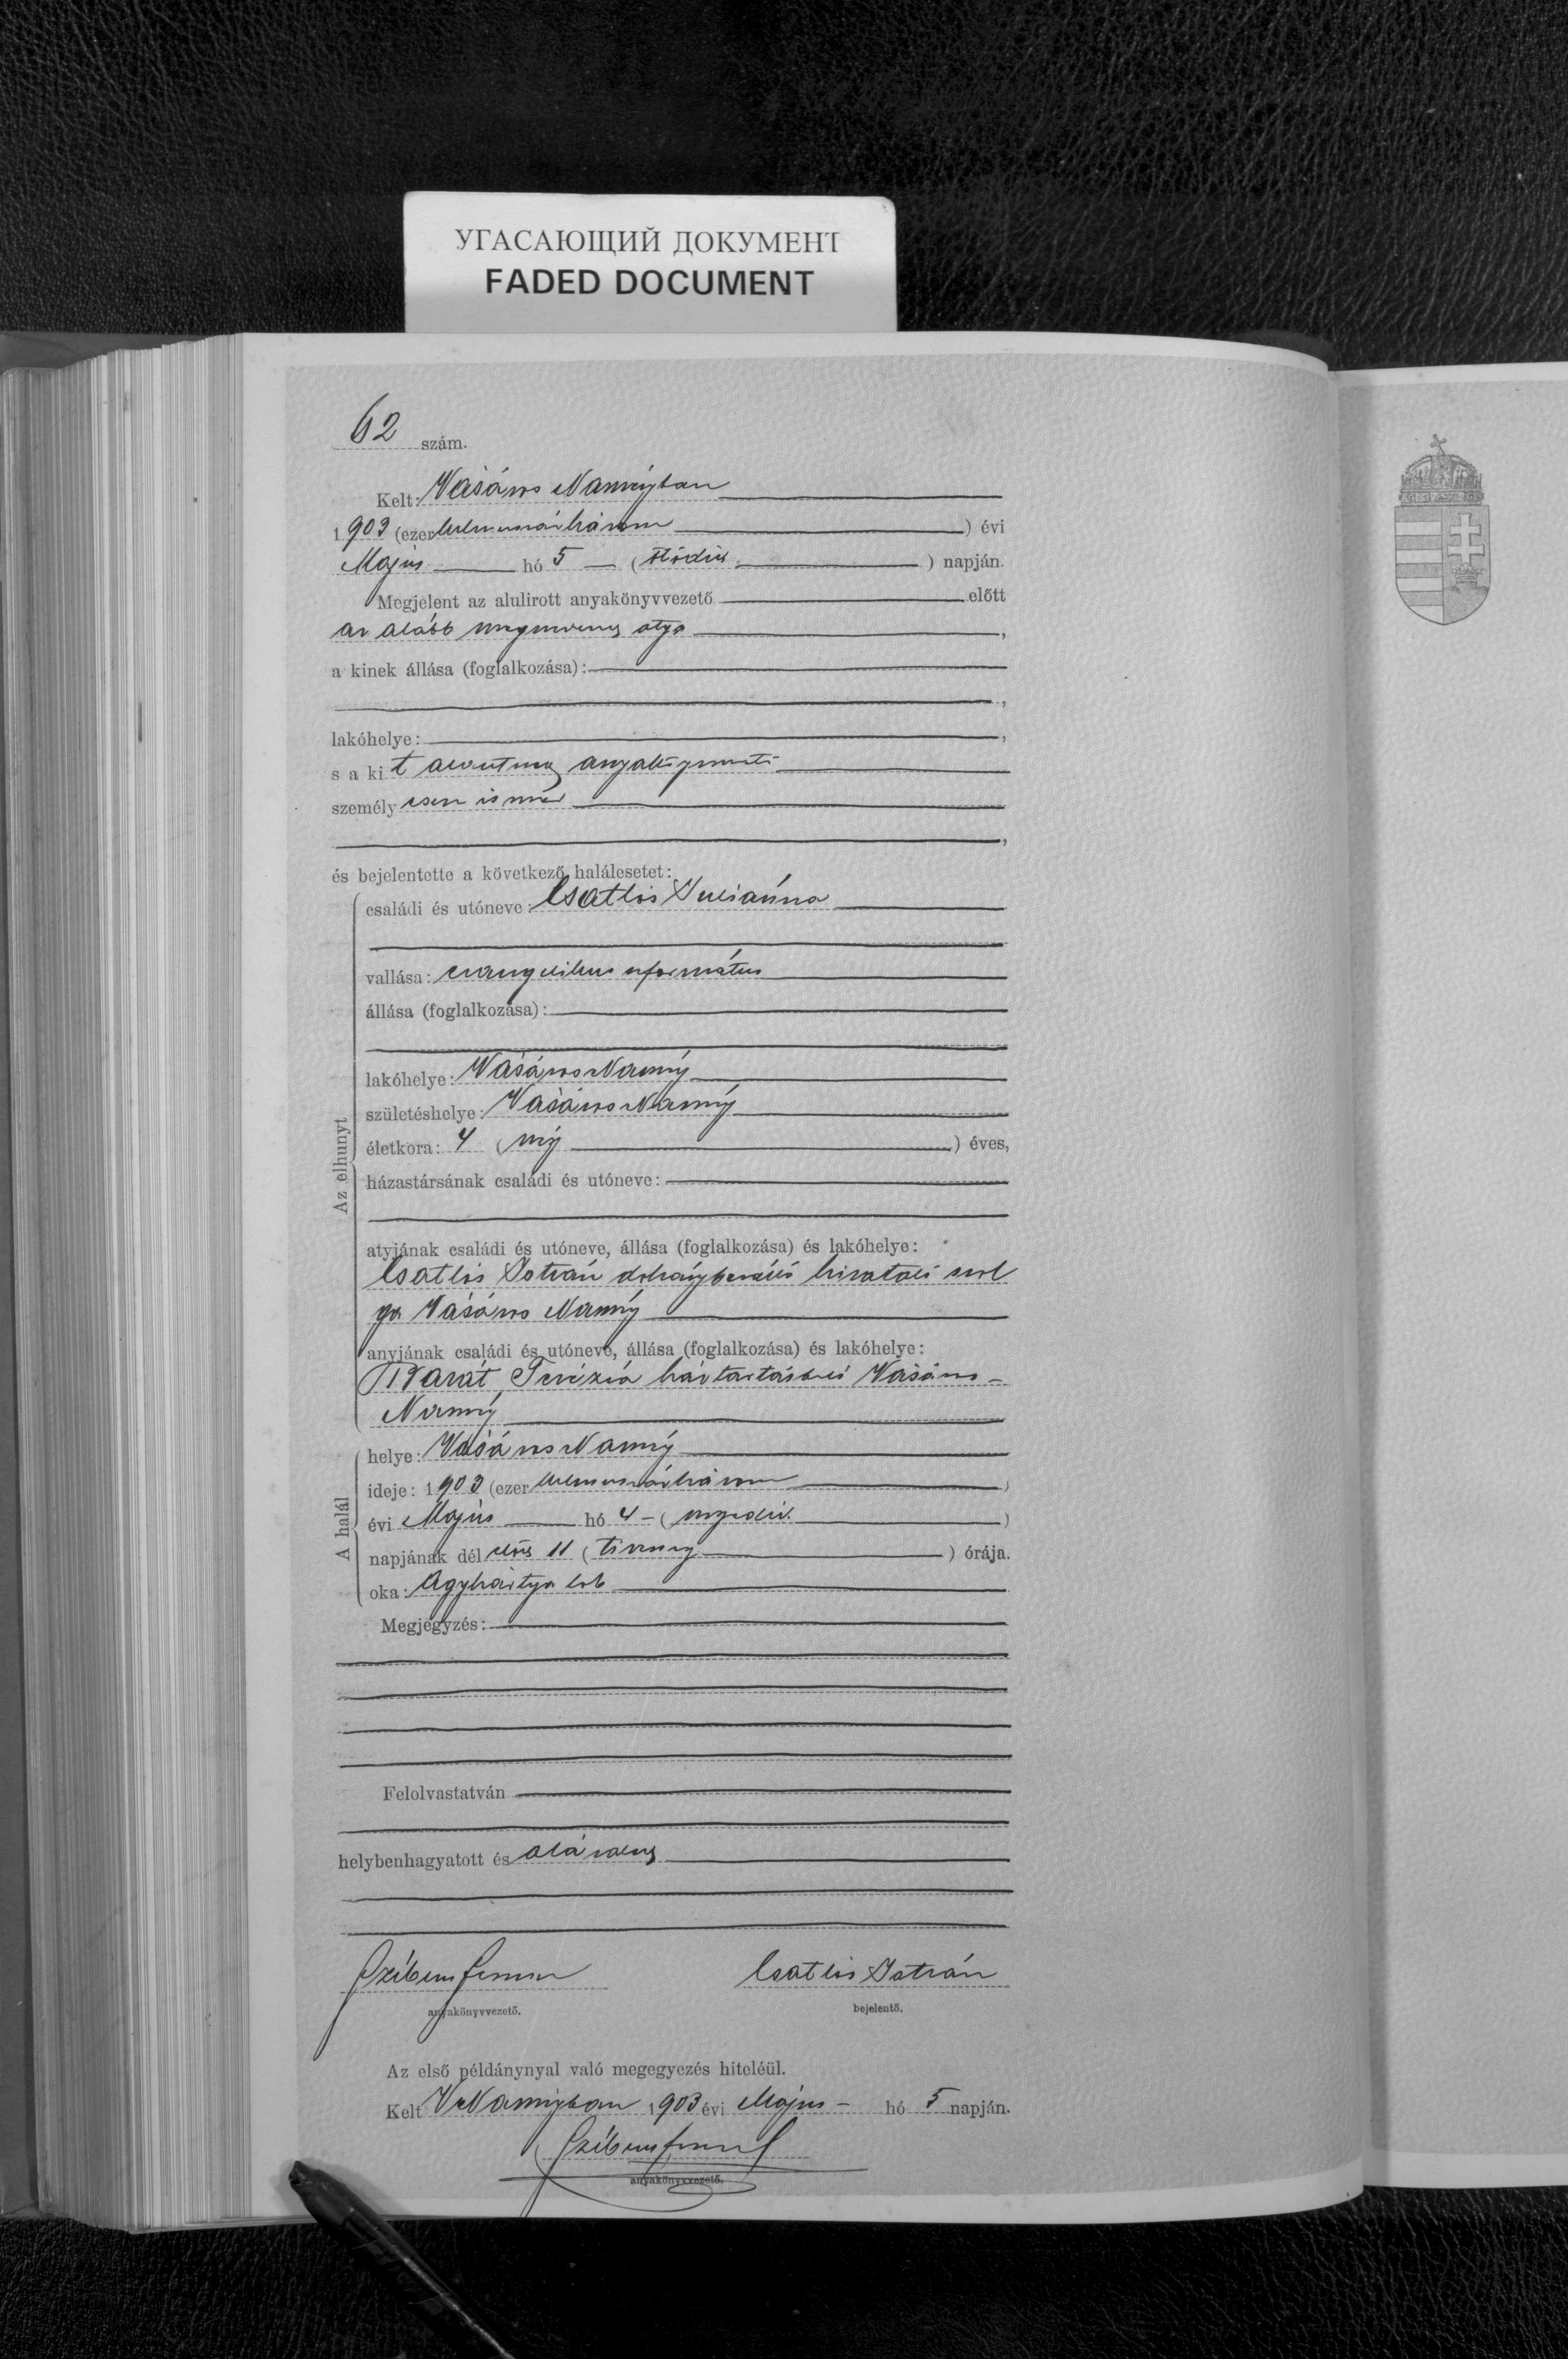 УГАСАЮЩИЙ ДОКУМЕНТ
FADED DOCUMENT
62 szám.
Kelt: Vásáros Naményban
1903 (ezerkilenczszázhárom) évi
Május hó 5 (ötödik) napján.
Megjelent az alulirott anyakönyvvezető előtt
az alább megnevezett atya,
a kinek állása (foglalkozása):
lakóhelye:
s a kit alulirott anyakönyvvezető
személyesen ismer
és bejelentette a következő halálesetet:
Az elhunyt
családi és utóneve: Csatlós Juliánna
vallása: evangelikus református
állása (foglalkozása):
lakóhelye: Vásáros Namény
születéshelye: Vásáros Namény
életkora: 4 (négy) éves,
házastársának családi és utóneve:
atyjának családi és utóneve, állása (foglalkozása) és lakóhelye:
Csatlós István dohánybeváltó hivatali szol
ga Vásáros Namény
anyjának családi és utóneve, állása (foglalkozása) és lakóhelye:
Barát Terézia háztartásbeli Vásáros-
Namény
A halál
helye: Vásáros Namény
ideje: 1903 (ezerkilenczszázhárom)
évi Május hó 4 - (negyedik)
napjának dél előtt 11 (tizenegy) órája.
oka: Agyhártya lob
Megjegyzés:
Felolvastatván
helybenhagyatott és aláiratott
Csatlós István
anyakönyvvezető. bejelentő.
Az első példánynyal való megegyezés hiteléül.
Kelt V Naményban 1903 évi Május - hó 5 napján.
anyakönyvvezető.